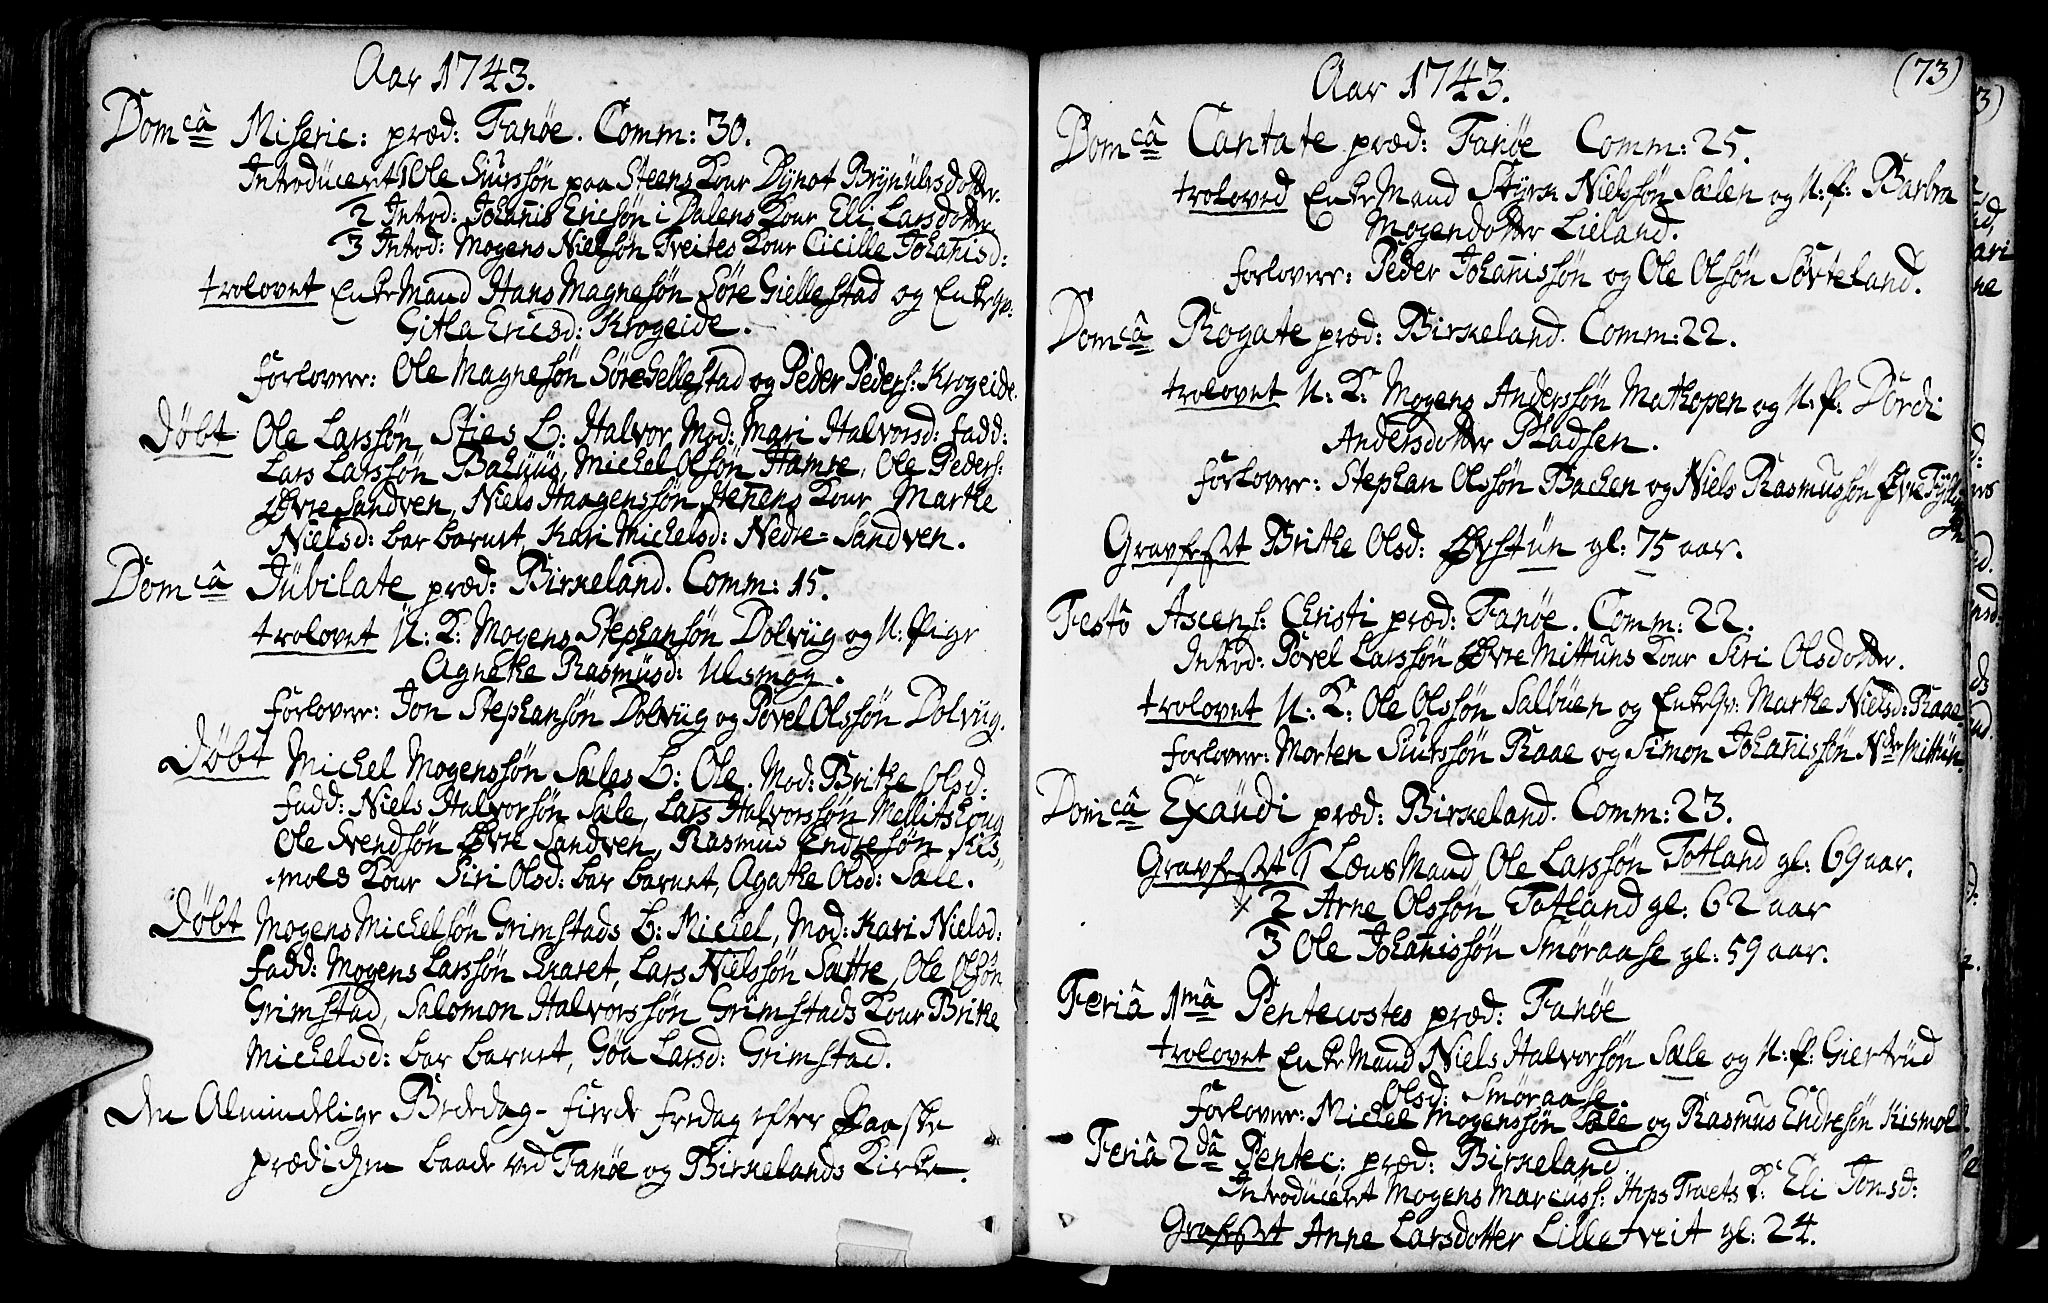 Aar 1743.
Dom câ Miseric: præd: Fanøe. Comm: 30.
Introduceret 1 Ole Siurssøn paa Steens Kone Dynot Brynülvsdotter.
2 Introd: Johanis Ericsøn i Dalens Kone Eli Larsdotter.
3 Introd: Mogens Nielsøn Tveites Kone Cicille Johanisd:
trolovet EnkeMand Hans Magnesøn Søre Giellestad og Enkeqv:
Gitla Ericsd: Krogeide.
forlovere: Ole Magnesøn Søre Gellestad og Peder Peders: Krogeide.
Døbt Ole Larssøn Sties B: Halvor Mod: Mari Halvorsd: fadd:
Lars Larssøn Bahuus, Michel Olsøn Hamre, Ole Peders:
Øvre Sandven, Niels Haagenssøn Stenens Kone, Marthe
Nielsd: bar barnet, Kari Michelsd: Nedre-Sandven.
Dom câ Jübilate præd: Birkeland. Comm: 15.
trolovet U: K: Mogens Stephansøn Dolvüg og U: Pige
Agnethe Rasmüsd: Ulsmog.
forlovere: Jon Stephansøn Dolvüg og Povel Olssøn Dolvüg.
Døbt Michel Mogenssøn Sæles B: Ole. Mod: Brithe Olsd:
fadd: Niels Halvorsøn Sæle, Lars Halvorssøn Mellitshoug
Ole Svendsøn Øvre Sandven, Rasmus Endresøn Kis,
mols Kone Siri Olsd: bar barnet, Agathe Olsd: Sæle.
Døbt Mogens Michelsøn Grimstads B: Michel, Mod: Kari Nielsd:
fadd: Mogens Larssøn Skaret, Lars Nielssøn Sættre, Ole Olsøn
Grimstad, Salomon Halvorssøn Grimstads Kone Brithe
Michelsd: bar barnet, Göa Larsd: Grimstad.
Den Almindelige Bededag fierde fredag efter Paaske
prædichen baade ved Fanøe og Birkelands Kirke.
Aar 1743. (73)
Dom câ Cantate præd: Fanøe Comm: 25.
troloved EnkeMand Styrk Nielssøn Sælen og U: P: Barbra
Mogendotter Lieland.
forlovere: Peder Johanissøn og Ole Olsøn Sørteland.
Dom câ Rogate præd: Birkeland. Comm: 22.
trolovet U: K: Mogens Anderssøn Mathopen og U: P: Dordi
Andersdotter Pladsen.
forlovere: Stephan Olssøn Bachen og Niels Rasmussøn Øvre
Gravfæst Brithe Olsd: Øvstün gl: 75 aar.
Festô Ascens: Christi præd: Fanøe. Comm: 22.
Introd: Povel Larssøn Øvre Mittuns Kone Siri Olsdotter.
trolovet U: K: Ole Olssøn Salbüen og Enkeqv: Marthe Nielsd: Raae
forlovere: Morten Siurssøn Raae og Simon Johanissøn Ndre Mittün.
Dom câ Exaüdi præd: Birkeland. Comm: 23.
Gravfæst 1 LænsMand Ole Larssøn Totland gl: 69 aar.
x 2 Arne Olssøn Totland gl: 62 aar
3 Ole Johanissøn Smøraase gl: 59 aar.
Feriâ 1mâ Pentecostes præd: Fanøe
trolovet EnkeMand Niels Halvorsøn Sæle og U: P: Giertrüd
Olsd: Smøraase.
forlovere: Michel Mogenssøn Sæle og Rasmus Endresøn Kismol
Feriâ 2dâ Pentec: præd: Birkeland
Introdüceret Mogens Marcüss: Hops Træets K: Eli Jonsd:
Grafæst Anne Larsdotter Lilletveit gl: 24.